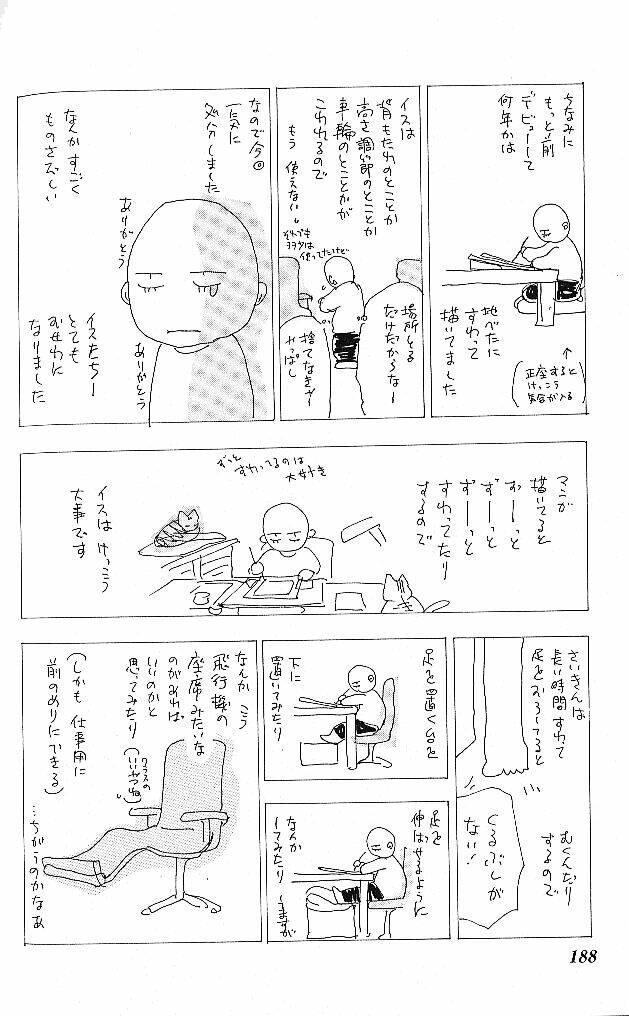 ちなみに
もっと前
デビューして
何年かは
地べたに
すわって
描いてました
↑
(正座すると
けっこう
気合が入る)
イスは
背もたれのとことか
高さ調節のとことか
車輪のとことかが
こわれるので
もう使えない。
それでも
ヨヲクは
使ってたけど
場所とる
だけだからなー
捨てなきゃー
やっぱし
なので今回
一気に
処分しました
なんかすごく
ものさびしい
ありがとう
ありがとう
イスたちー
とても
お世わに
なりました
マンガ
描いてると
ずーっと
ずーっと
ずーっと
すわってたり
するので
ずっと
すわいてるのは
大好き
イスはけっこう
大事です
さいきんは
長い時間すわて
足をおろしてると
むくんだり
するので
くるぶしが
ない!
足を置く台を
下に
置いてみたり
足を
伸ばせるように
なんか
してみたりしますが
なんかこう
飛行機の
座席みたいな
のがあれば
いいのかと
思ってみたり
(クラスの
いいやつね)
(しかも仕事用に
前のめりにできる)
…ちがうのかなあ
188